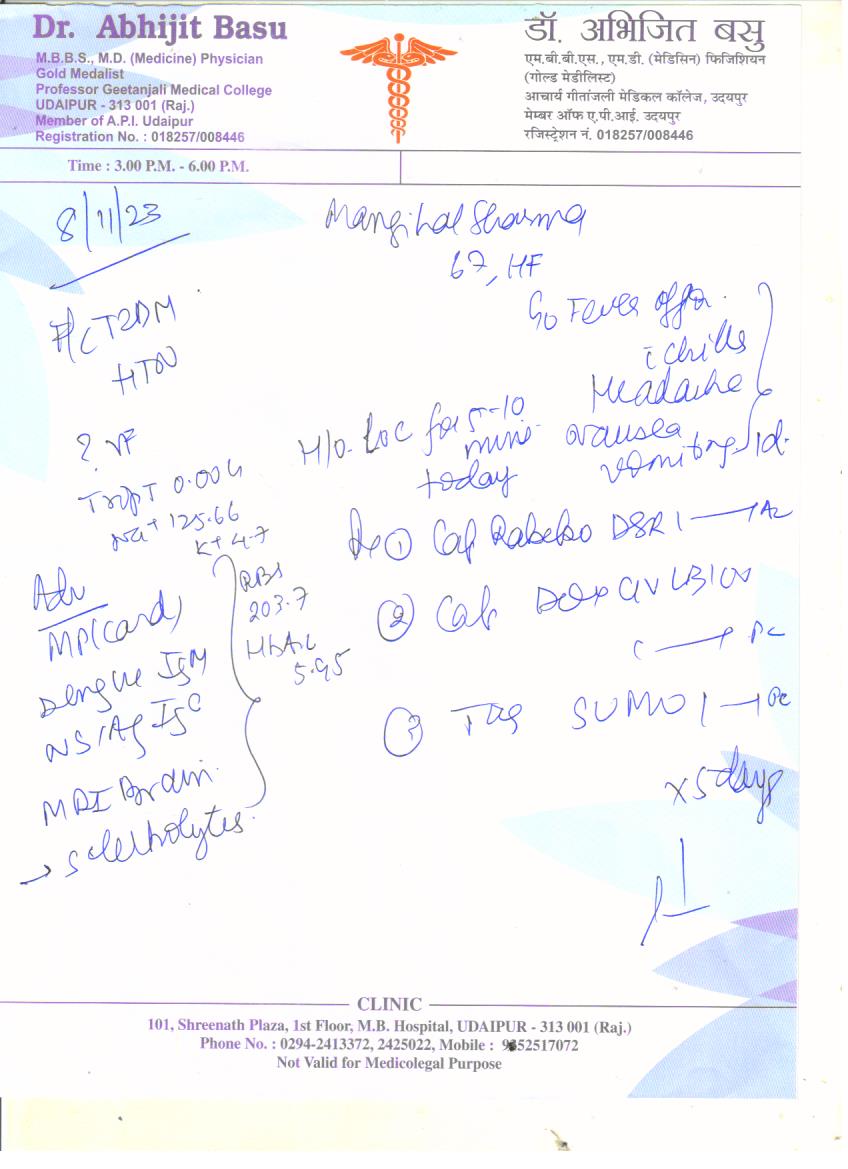 Dr. Abhijit Basu
M.B.B.S., M.D. (Medicine) Physician
Gold Medalist
Professor Geetanjali Medical College
UDAIPUR - 313 001 (Raj.)
Member of A.P.I. Udaipur
Registration No. : 018257/008446
डॉ. अभिजित बसु
एम.बी.बी.एस., एम.डी. (मेडिसिन) फिजिशियन
(गोल्ड मेडीलिस्ट)
आचार्य गीतांजली मेडिकल कॉलेज, उदयपुर
मेम्बर ऑफ ए.पी.आई. उदयपुर
रजिस्ट्रेशन नं. 018257/008446
Time : 3.00 P.M. - 6.00 P.M.
8/11/23
Mangilal Sharma
67,
Fever
chills
Headache
nausea
vomiting
T2DM
HTN
H/o LOC for 5-10
mins
today
TropT 0.004
Na+ 125.66
K+ 4.7
RBS
203.7
HbA1c
5.95
Adv
MP(card)
Dengue IgM
NS1Ag
MRI Brain
S electrolytes
① Cap DSR 1
② Cap
③ SUMO 1
x 5 days
CLINIC
101, Shreenath Plaza, 1st Floor, M.B. Hospital, UDAIPUR - 313 001 (Raj.)
Phone No. : 0294-2413372, 2425022, Mobile : 9352517072
Not Valid for Medicolegal Purpose